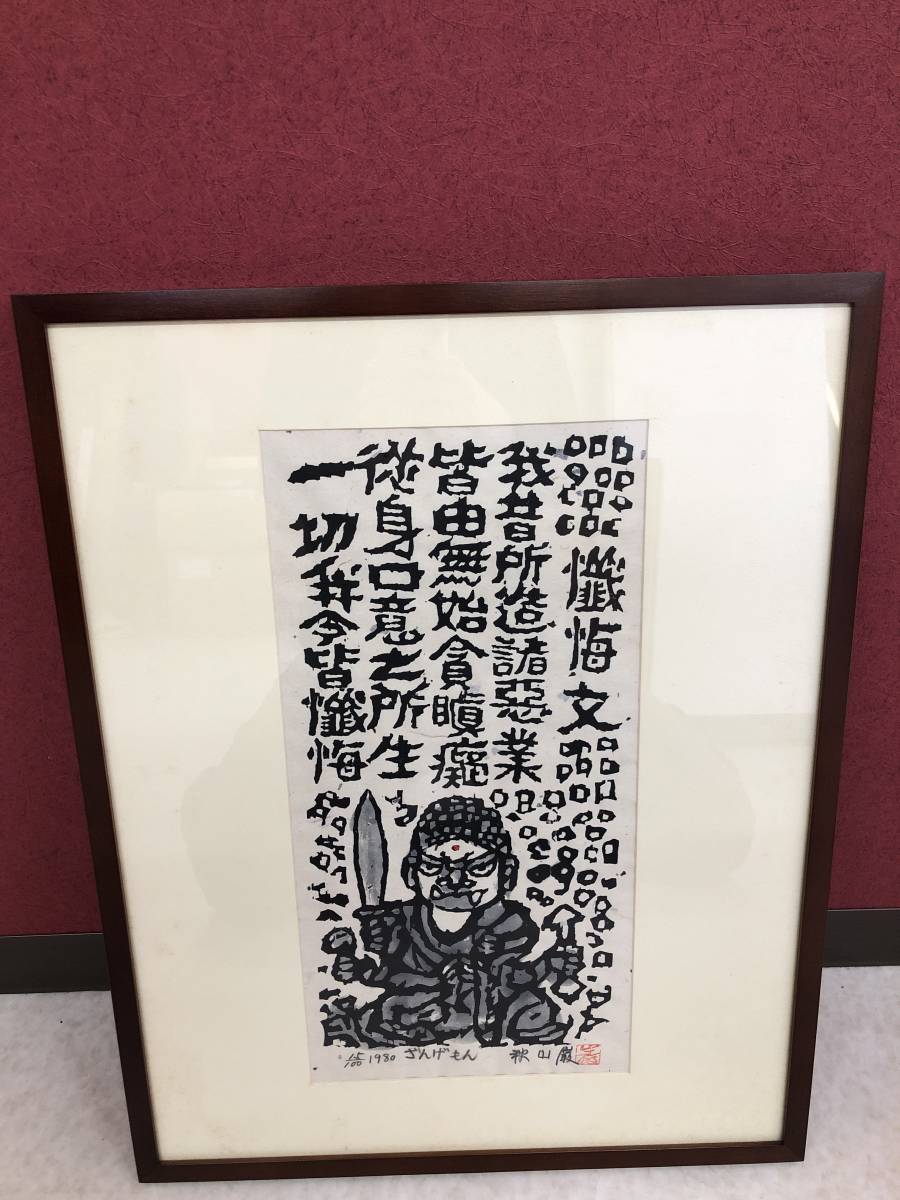 懺悔文
我昔所造諸惡業
皆由無始貪瞋癡
從身口意之所生
一切我今皆懺悔
1980 ざんげもん 秋山巌